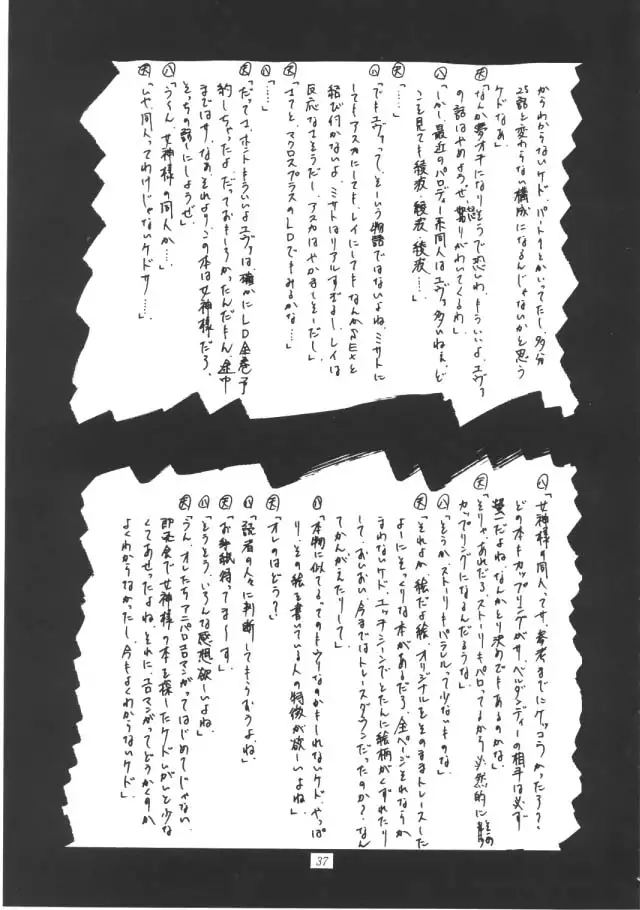 からわからないケド、パト1とかいってたし、多分
25話と変わらない構成になるんじゃないかと思う
ケドなぁ」
天「なんか夢オチになりそうで恐いわ、もういいよ、エヴァ
の話はやめようぜ、怒りがわいてくるわ」
八「しかし最近のパロディー系同人はエヴァ多いねぇ、ど
こを見ても綾波、綾波、綾波…」
天「……」
八「でもエヴァって、そーいう物語ではないよね、ミサトに
してもアスカにしてもレイにしてもなんかSEXと
結び付かないよ、ミサトはリアルすぎるし、レイは
反応なさそうだし、アスカはやかましそーだし」
天「さてと、マクロスプラスのLDでもみるかな…」
八「……」
天「だってさ、ホントもういいよエヴァは、確かにLD全巻予
約しちゃったよ、だっておもしろかったんだもん、途中
まではサ、なぁ、それより、この本は女神様だろ、
そっちの話にしようぜ」
八「うーん、女神様の同人か…」
天「いや、同人ってわけじゃないケドサ……」
八「女神様の同人ってサ、参考までにケッコウかったろ?
どの本もカップリングがサ、ベルダンディーの相手は必ず
螢一だよね、なんかとり決めでもあるのかな」
天「そりゃあれだろ、ストーリーもパロってるから必然的にその
カップリングになるんだろうな」
八「そうか、ストーリーもパラレルって少ないものな」
天「それよか絵だよ絵、オリジナルをそのままトレースした
よーにそっくりな本があるだろ、全ページそれならか
まわないケド、エッチシーンでとたんに絵柄がくずれたり
して、おいおい、今まではトレースダウンだったのか?なん
てかんがえたりして」
八「本物に似てるってのもウリなのかもしれないケド、やっぱ
り、その絵を書いている人の特徴が欲しいよね」
天「オレのはどう?」
八「読者の人々に判断してもらおうよね」
天「お手紙待ってまーす」
八「そうそう、いろんな感想欲しいよね」
天「うん、オレたちアニパロエロマンガってはじめてじゃない、
即売会で女神様の本を探したケドいがいと少な
くてあせったよね、それにエロマンガってどうかくのか
よくわからなかったし、今もよくわからないケド」
37